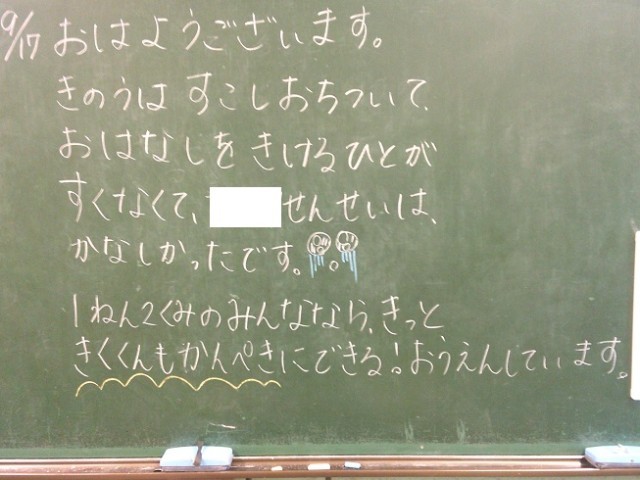 9/17 おはようございます。
きのうは すこしおちついて、
おはなしを きけるひとが
すくなくて、 せんせいは、
かなしかったです。
1ねん2くみのみんななら、きっと
きくくんもかんぺきにできる!おうえんしています。